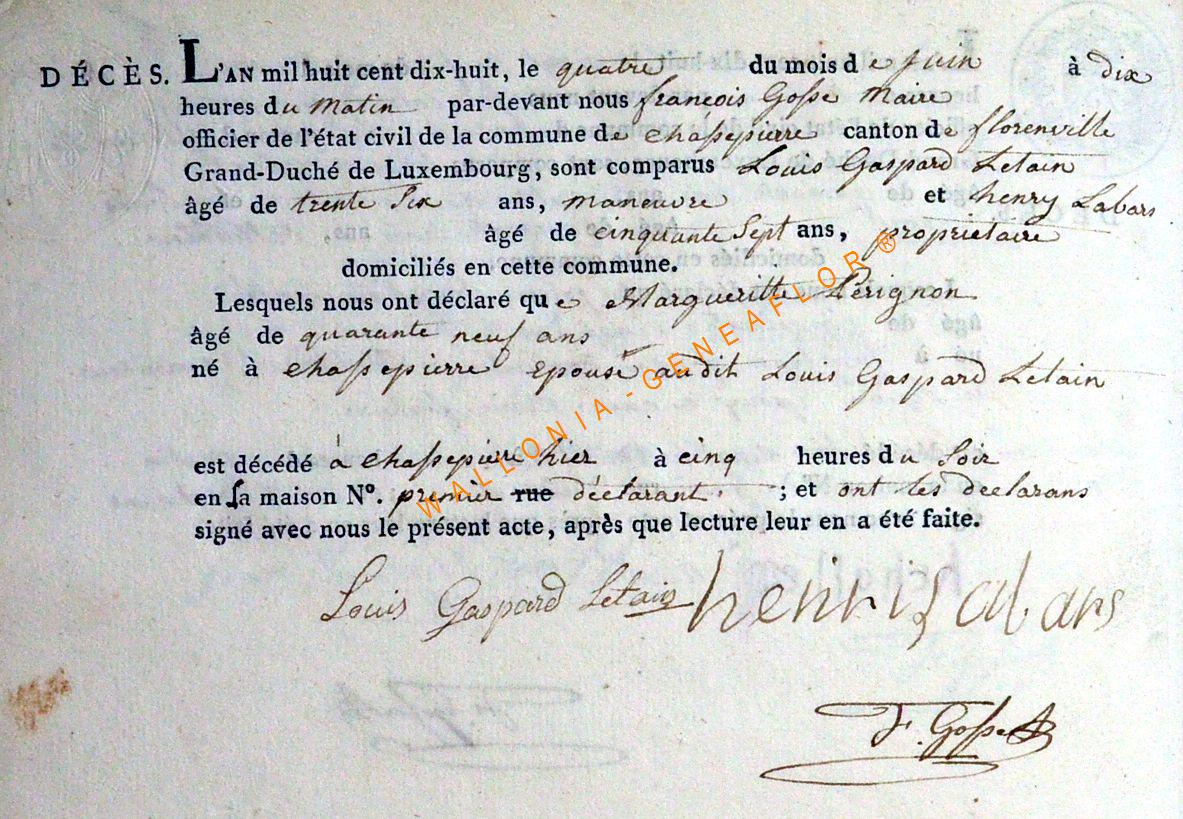 DÉCÈS. L'AN mil huit cent dix-huit, le quatre du mois de Juin à dix
heures du matin par-devant nous francois Gosse Maire
officier de l'état civil de la commune de chassepierre canton de florenville
Grand-Duché de Luxembourg, sont comparus Louis Gaspard Letain
âgé de trente Six ans, maneuvre et henry Labars
âgé de cinquante Sept ans, propriétaire
domiciliés en cette commune.
Lesquels nous ont déclaré que Margueritte Pérignon
âgé de quarante neuf ans
né à chassepierre Epouse audit Louis Gaspard Letain
est décédé à chassepierre hier à cinq heures du Soir
en sa maison N°. premier rue déclarant ; et ont les declarans
signé avec nous le présent acte, après que lecture leur en a été faite.
Louis Gaspard Letain henri Labars
F. Gosse
WALLONIA-GENEAFLOR ®